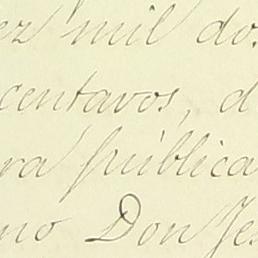 ez mil do
centavos, d
ra pública
no Don Jes